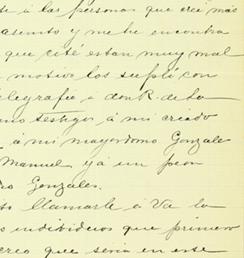 se á las personas que creí más
asunto y me he encontra
que cité estan muy mal
motivo los suplí con
telegrafie a don R. de la
mo testigos á mi criado
a mi mayordomo Gonzales
Manuel y á un peon
Gonzales.
llamarle á Va la
s individuos que primero
creo que seria en este